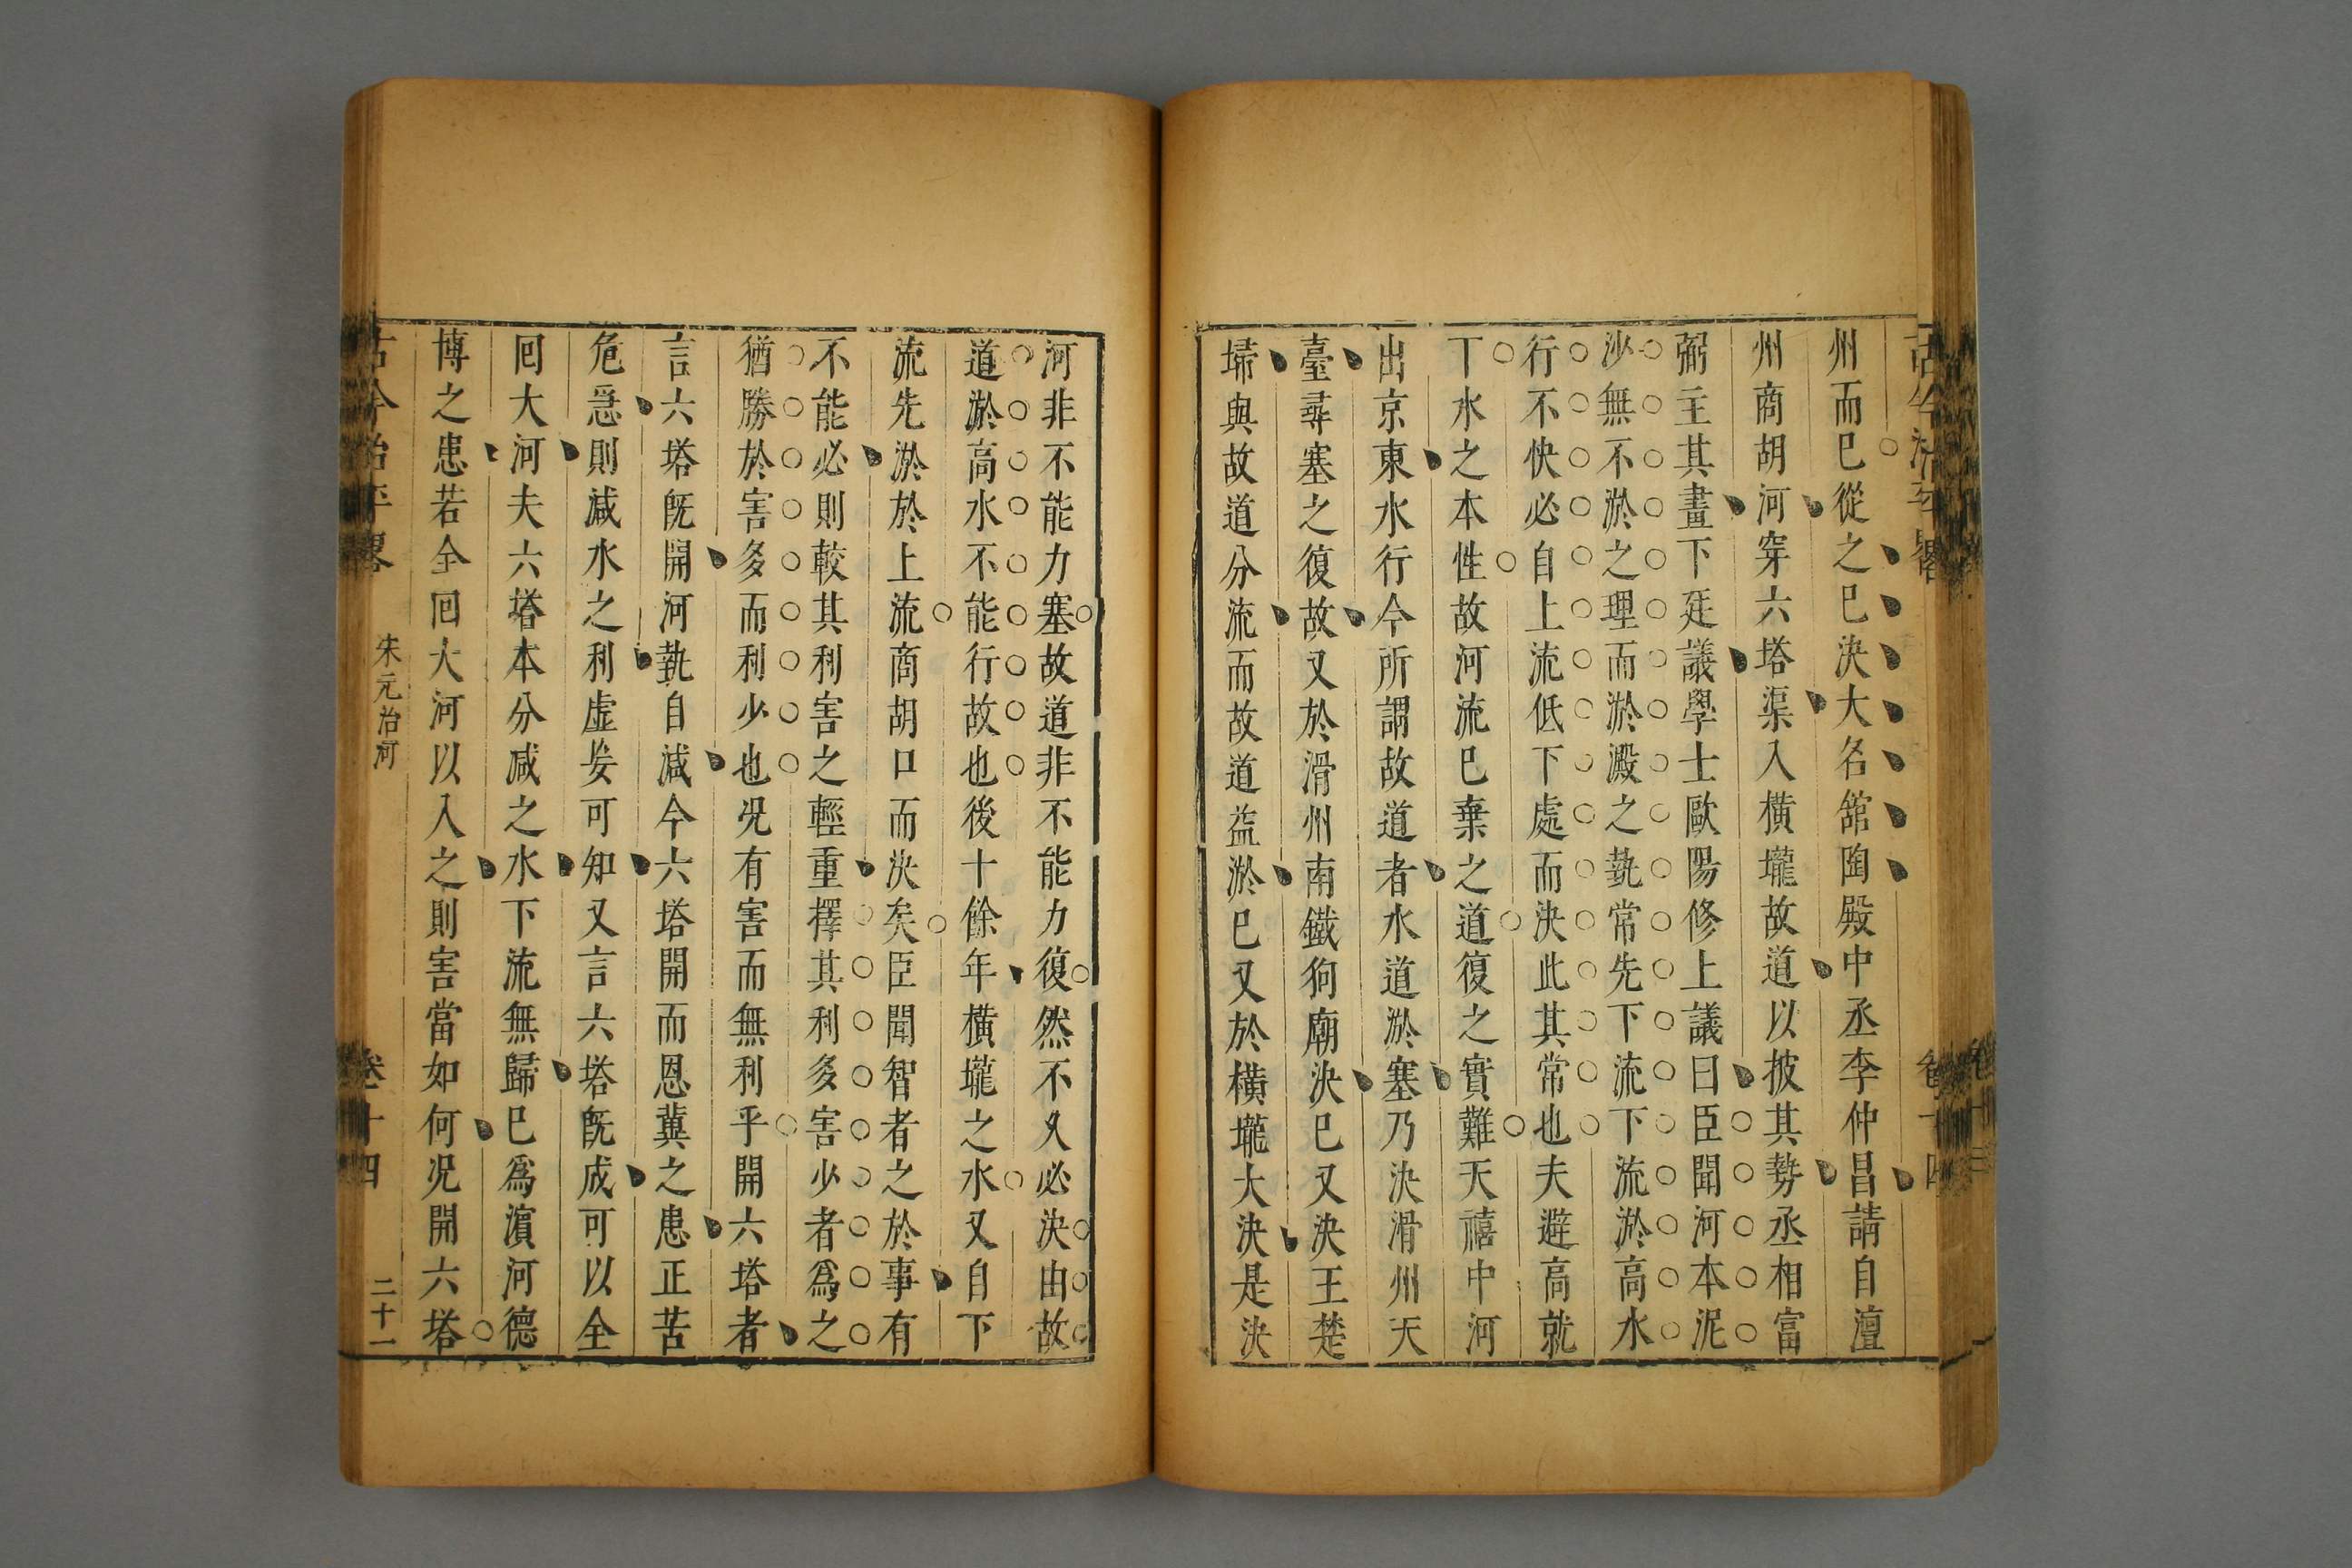 州而已從之已決大名舘陶殿中丞李仲昌請自澶
州商胡河穿六塔渠入橫壠故道以披其勢丞相富
弼主其畫下廷議學士歐陽修上議曰臣聞河本泥
沙無不淤之理而淤澱之埶常先下流下流淤高水
行不快必自上流低下處而決此其常也夫避高就
下水之本性故河流已棄之道復之實難天禧中河
出京東水行今所謂故道者水道淤塞乃決滑州天
臺尋塞之復故又於滑州南鐵狗廟決已又決王楚
埽與故道分流而故道益淤已又於橫壠大決是決
河非不能力塞故道非不能力復然不久必決由故
道淤高水不能行故也後十餘年橫壠之水又自下
流先淤於上流商胡口而決矣臣聞智者之於事有
不能必則較其利害之輕重擇其利多害少者爲之
猶勝於害多而利少也况有害而無利乎開六塔者
言六塔旣開河埶自減今六塔開而恩冀之患正苦
危急則減水之利虛妄可知又言六塔旣成可以全
回大河夫六塔本分減之水下流無歸已爲濵河德
博之患若全回大河以入之則害當如何况開六塔
古今治平畧
朱元治河
卷十四
二十一